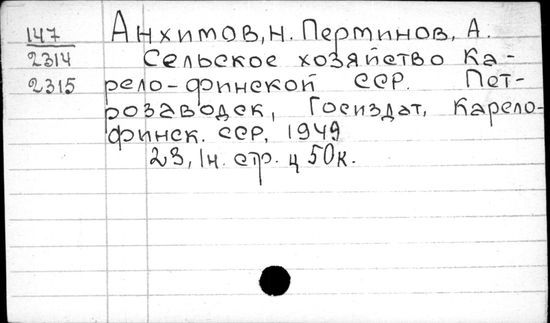 147 Анхимов, Н. Перминов, А.
2314 Сельское хозяйство Ка-
2315 рело-финской ССР. Пет-
розаводск, Госиздат, Карело-
финск. ССР, 1949
23, 1н. стр. ц 50к.